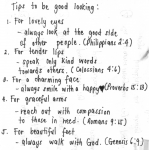 Tips to be good looking:
1. For lovely eyes
- always look at the good side
of other people. (Philippians 2:4)
2. For tender lips
- speak only kind words
towards others. (Colossians 4:6)
3. For a charming face
- always smile with a happy♥ (Proverbs 15:13)
4. For graceful arms
- reach out with compassion
to those in need. (Romans 9:15)
5. For beautiful feet
- always walk with God. (Genesis 6:9)